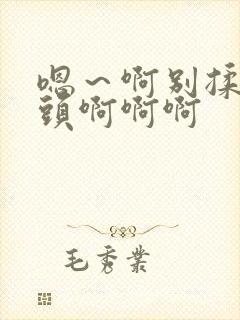 嗯～啊别揉
頭啊啊啊
毛秀業